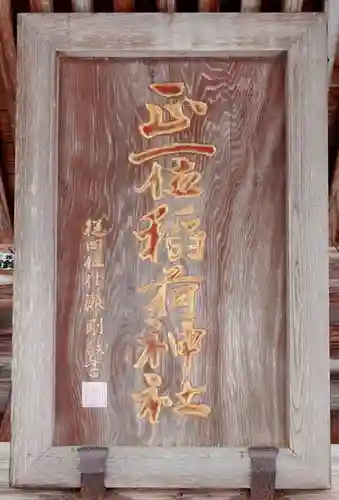 正一位稲荷神社
從四位 剛 書